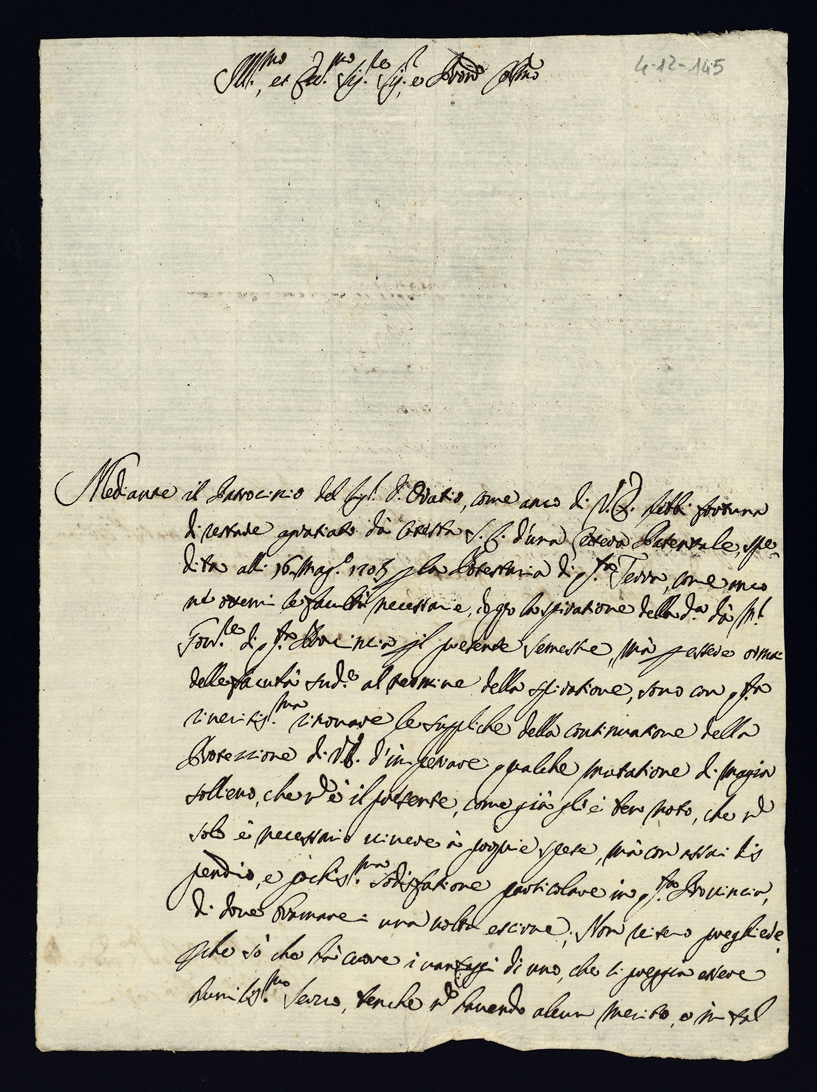 Ill.mo, et Ecc.mo Sig.re Sig.r, e Pron Colmo
4-12-145
Mediante il Patrocinio del Sig.r D. Oratio, come anco di V.E. hebbi fortuna
di restare gratiato da cotesta S.C. d'una lettera Patentale, spe-
dita alli 16 Mag.o 1705 p la Potestaria di q.sta Terra, come anco
ne ottenni le facoltà necessarie, doppo la spiratione della d.a dà
di q.sta Provincia p il presente semestre, mà p essere ormai
delle facoltà sud.e al termine della spiratione, sono con q.sta
riveritis.ma rinovare le suppliche della continuatione della
Protezzione di V.E. d'impetrare qualche mutatione di maggior
sollievo, che nō è il presente, come già gli è ben noto, che nō
solo è necessario vivere à proprie spese, mà con assai dis
pendio, e pochis.ma sodisfatione particolare in q.sta Provincia,
di dove bramarei una volta escire; Non resto pregli
p che sò che hà cuore i vantaggi di uno, che si preggia essere
humilis.mo Servo, benche nō havendo alcun merito, o in tal